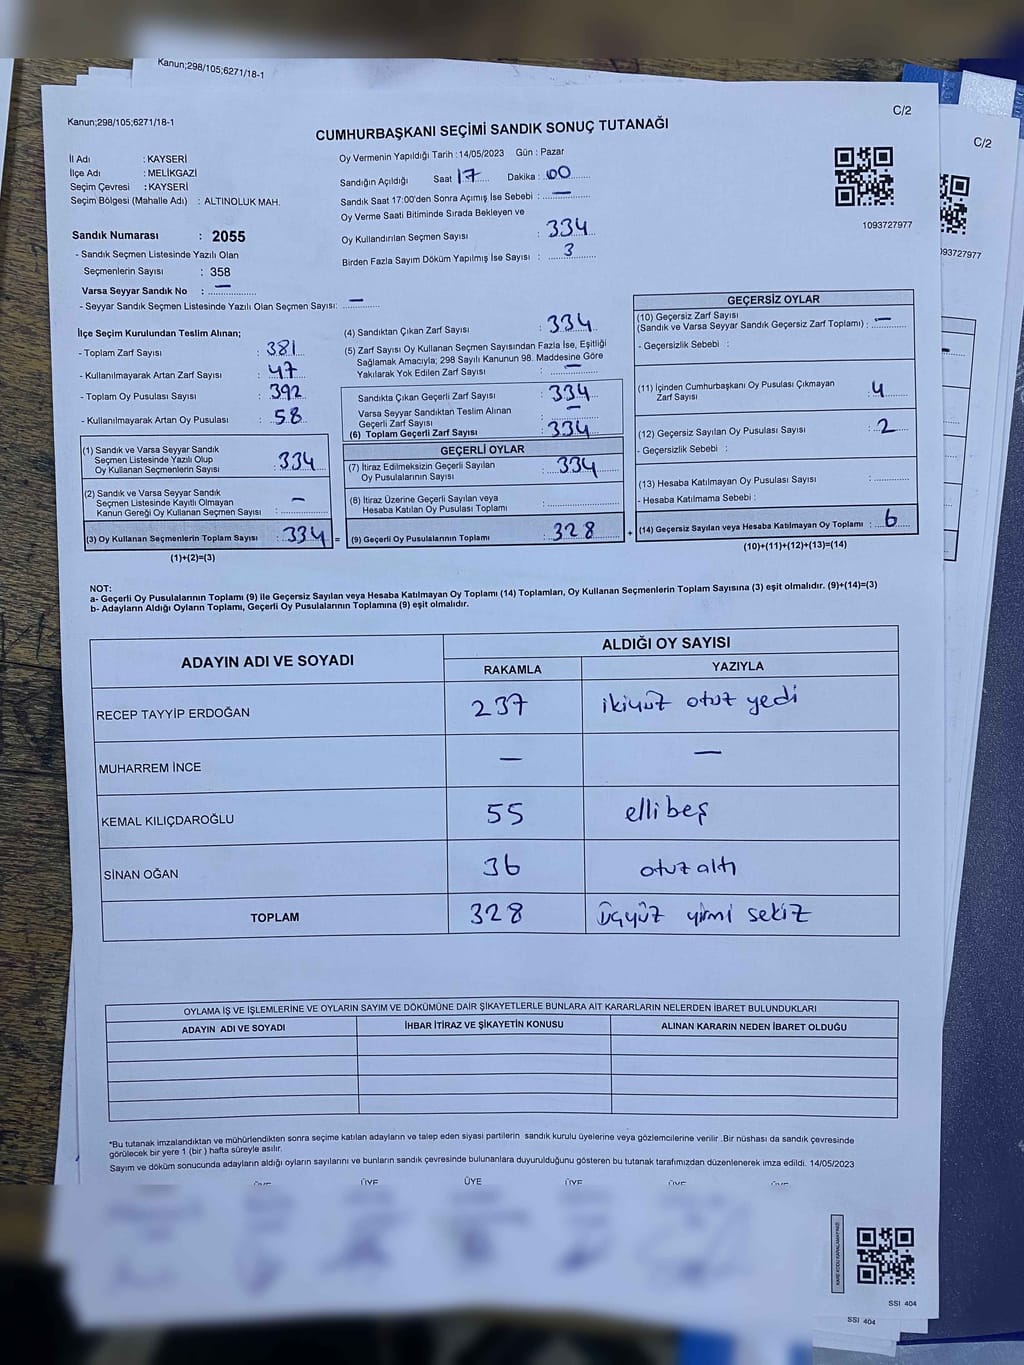 Kanun;298/105;6271/18-1
Kanun;298/105;6271/18-1
C/2
C/2
CUMHURBAŞKANI SEÇİMİ SANDIK SONUÇ TUTANAĞI
İl Adı : KAYSERİ
İlçe Adı : MELİKGAZİ
Seçim Çevresi : KAYSERİ
Seçim Bölgesi (Mahalle Adı) : ALTINOLUK MAH.
Oy Vermenin Yapıldığı Tarih : 14/05/2023 Gün : Pazar
Sandığın Açıldığı Saat 17 Dakika : 00
Sandık Saat 17:00'den Sonra Açımış İse Sebebi : —
Oy Verme Saati Bitiminde Sırada Bekleyen ve
Oy Kullandırılan Seçmen Sayısı : 334
Birden Fazla Sayım Döküm Yapılmış İse Sayısı : 3
1093727977
093727977
Sandık Numarası : 2055
- Sandık Seçmen Listesinde Yazılı Olan
Seçmenlerin Sayısı : 358
Varsa Seyyar Sandık No : —
- Seyyar Sandık Seçmen Listesinde Yazılı Olan Seçmen Sayısı: —
İlçe Seçim Kurulundan Teslim Alınan;
- Toplam Zarf Sayısı : 381
- Kullanılmayarak Artan Zarf Sayısı : 47
- Toplam Oy Pusulası Sayısı : 392
- Kullanılmayarak Artan Oy Pusulası : 58
(1) Sandık ve Varsa Seyyar Sandık
Seçmen Listesinde Yazılı Olup
Oy Kullanan Seçmenlerin Sayısı : 334
(2) Sandık ve Varsa Seyyar Sandık
Seçmen Listesinde Kayıtlı Olmayan
Kanun Gereği Oy Kullanan Seçmen Sayısı : —
(3) Oy Kullanan Seçmenlerin Toplam Sayısı : 334 =
(1)+(2)=(3)
(4) Sandıktan Çıkan Zarf Sayısı : 334
(5) Zarf Sayısı Oy Kullanan Seçmen Sayısından Fazla İse, Eşitliği
Sağlamak Amacıyla; 298 Sayılı Kanunun 98. Maddesine Göre
Yakılarak Yok Edilen Zarf Sayısı : —
Sandıkta Çıkan Geçerli Zarf Sayısı : 334
Varsa Seyyar Sandıktan Teslim Alınan
Geçerli Zarf Sayısı : —
(6) Toplam Geçerli Zarf Sayısı : 334
GEÇERLİ OYLAR
(7) İtiraz Edilmeksizin Geçerli Sayılan
Oy Pusulalarının Sayısı : 334
(8) İtiraz Üzerine Geçerli Sayılan veya
Hesaba Katılan Oy Pusulası Toplamı :
(9) Geçerli Oy Pusulalarının Toplamı : 328 +
GEÇERSİZ OYLAR
(10) Geçersiz Zarf Sayısı
(Sandık ve Varsa Seyyar Sandık Geçersiz Zarf Toplamı) : —
- Geçersizlik Sebebi :
(11) İçinden Cumhurbaşkanı Oy Pusulası Çıkmayan
Zarf Sayısı : 4
(12) Geçersiz Sayılan Oy Pusulası Sayısı : 2
- Geçersizlik Sebebi :
(13) Hesaba Katılmayan Oy Pusulası Sayısı :
- Hesaba Katılmama Sebebi :
(14) Geçersiz Sayılan veya Hesaba Katılmayan Oy Toplamı : 6
(10)+(11)+(12)+(13)=(14)
NOT:
a- Geçerli Oy Pusulalarının Toplamı (9) ile Geçersiz Sayılan veya Hesaba Katılmayan Oy Toplamı (14) Toplamları, Oy Kullanan Seçmenlerin Toplam Sayısına (3) eşit olmalıdır. (9)+(14)=(3)
b- Adayların Aldığı Oyların Toplamı, Geçerli Oy Pusulalarının Toplamına (9) eşit olmalıdır.
ADAYIN ADI VE SOYADI ALDIĞI OY SAYISI
RAKAMLA YAZIYLA
RECEP TAYYİP ERDOĞAN 237 ikiyüz otuz yedi
MUHARREM İNCE — —
KEMAL KILIÇDAROĞLU 55 ellibeş
SİNAN OĞAN 36 otuz altı
TOPLAM 328 üçyüz yirmi sekiz
OYLAMA İŞ VE İŞLEMLERİNE VE OYLARIN SAYIM VE DÖKÜMÜNE DAİR ŞİKAYETLERLE BUNLARA AİT KARARLARIN NELERDEN İBARET BULUNDUKLARI
ADAYIN ADI VE SOYADI İHBAR İTİRAZ VE ŞİKAYETİN KONUSU ALINAN KARARIN NEDEN İBARET OLDUĞU
*Bu tutanak imzalandıktan ve mühürlendikten sonra seçime katılan adayların ve talep eden siyasi partilerin sandık kurulu üyelerine veya gözlemcilerine verilir .Bir nüshası da sandık çevresinde
görülecek bir yere 1 (bir ) hafta süreyle asılır.
Sayım ve döküm sonucunda adayların aldığı oyların sayılarını ve bunların sandık çevresinde bulunanlara duyurulduğunu gösteren bu tutanak tarafımızdan düzenlenerek imza edildi. 14/05/2023
ÜYE ÜYE ÜYE ÜYE
SSI 404
SSI 404